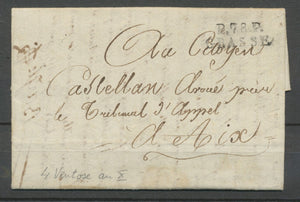 P.78.P.
GRASSE
Au Citoyen
Castellan avoué près
le Tribunal d'Appel
à Aix
4 Ventose an X